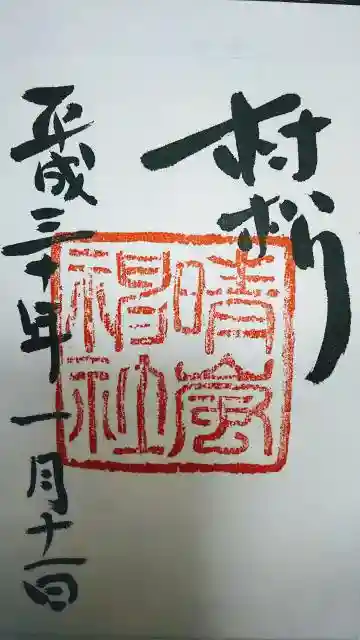 村松
晴嵐
神社
平成三十年一月十一日